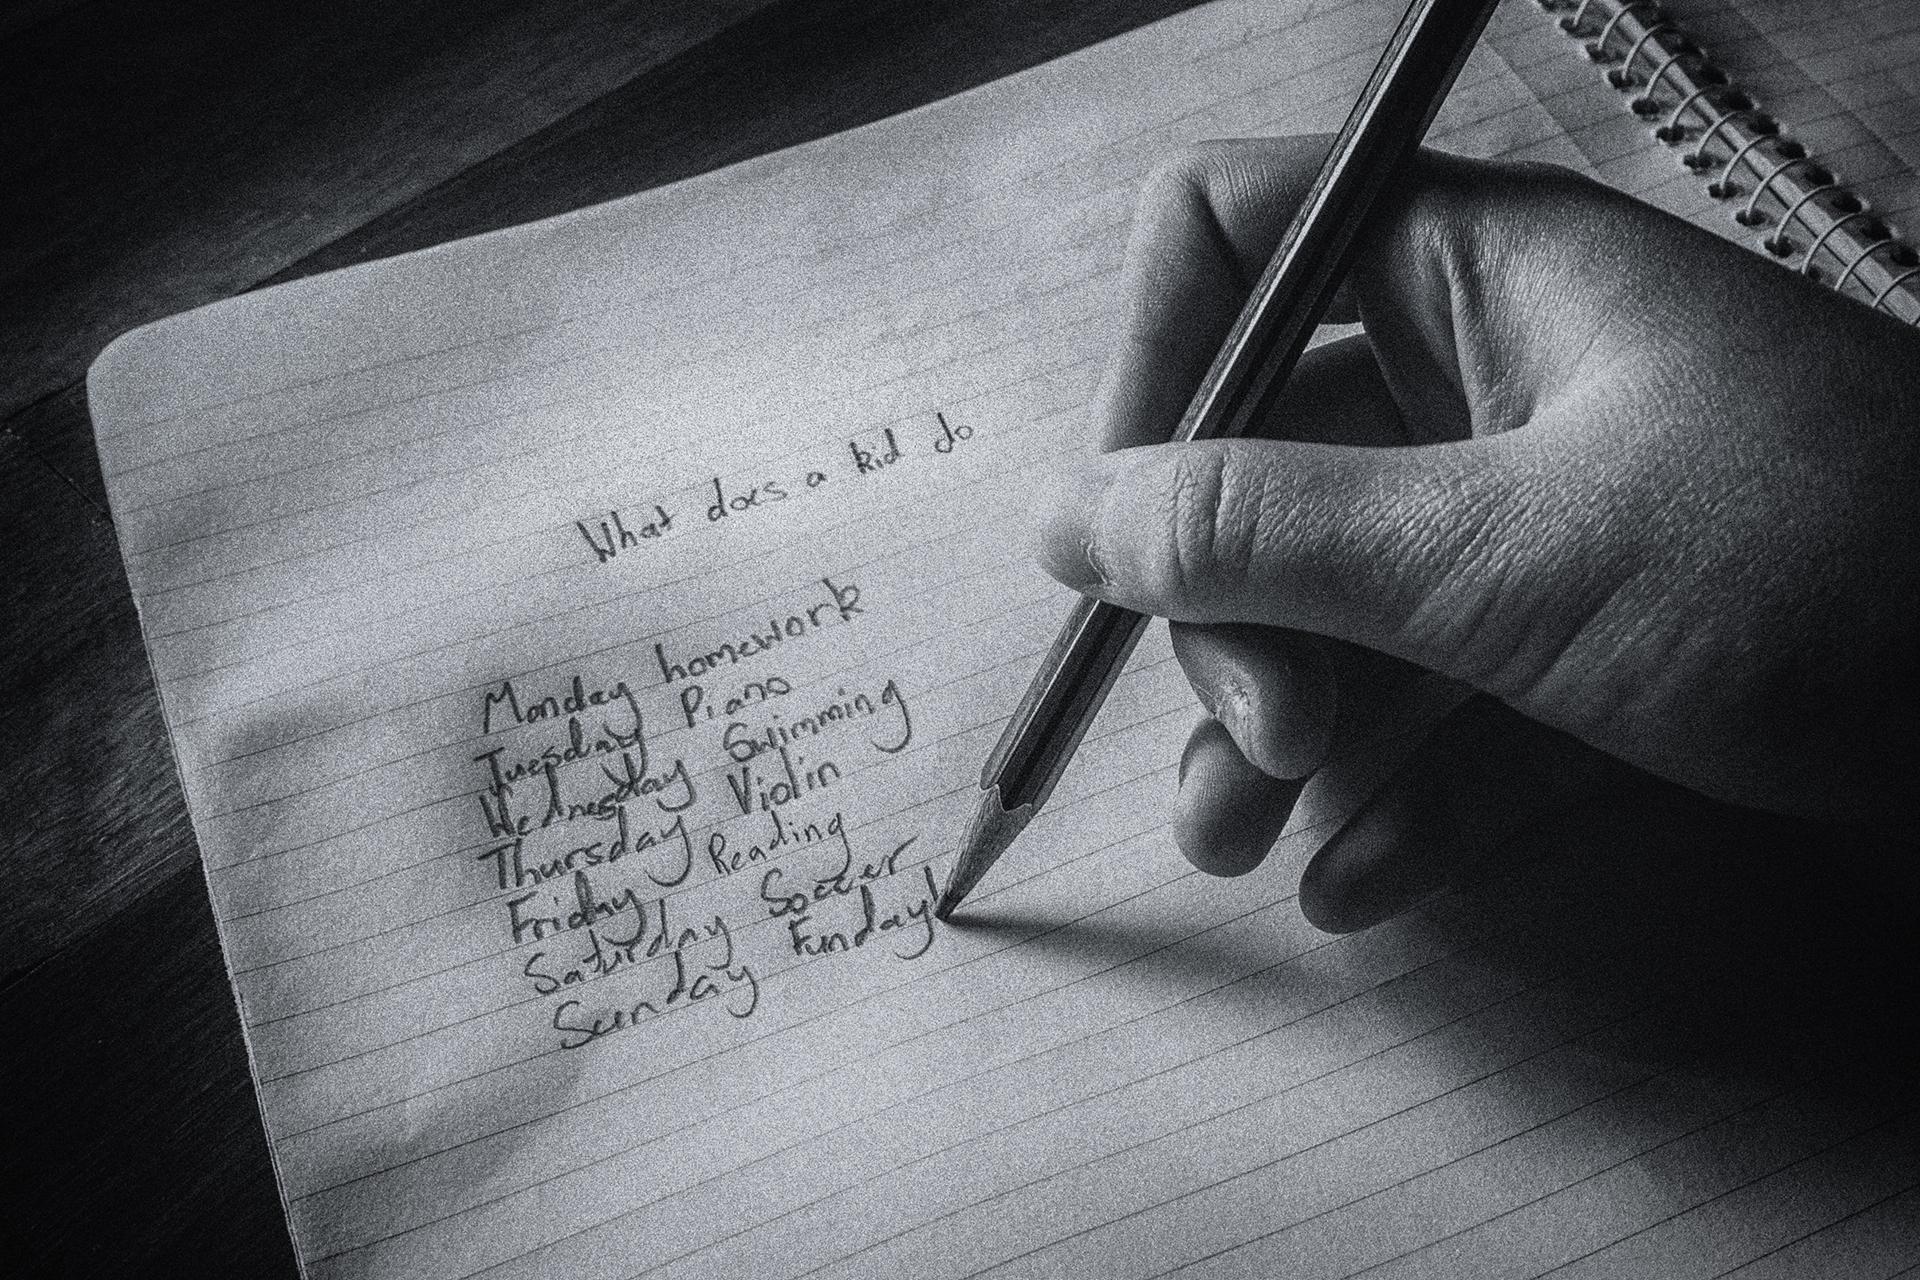 What does a kid do
Monday homework
Tuesday Piano
Wednesday Swimming
Thursday Violin
Friday Reading
Saturday Soccer
Sunday Funday!